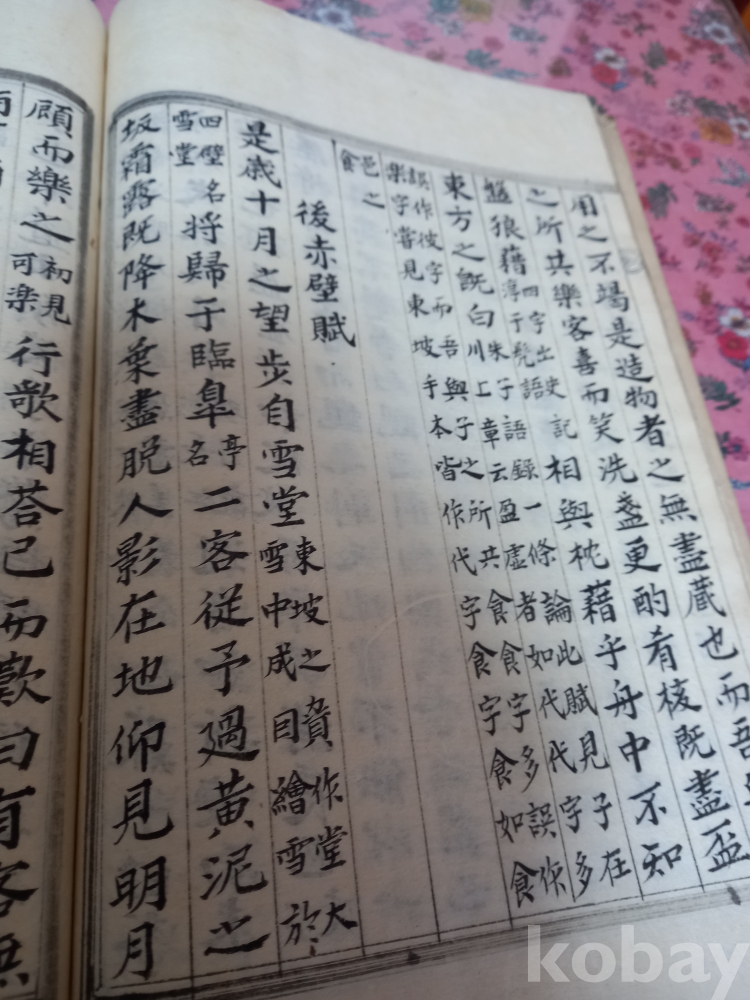 用之不竭是造物者之無盡蔵也而吾
之所共樂客喜而笑洗盞更酌肴核既盡盃
盤狼藉四字出史記淳于髡語相與枕藉乎舟中不知
東方之既白朱子語録一條論此賦見子在川上章云盈虛者如代代字多
誤作彼字而吾與子之所共食食字多誤作樂字嘗見東坡手本皆作代字食字食如食
邑之食
後赤壁賦
是歳十月之望步自雪堂東坡之作堂大雪中成因繪雪於
四壁名雪堂將歸于臨皐亭名二客從予過黃泥之
坂霜露既降木葉盡脱人影在地仰見明月
顧而樂之初見可楽行歌相荅已而歎曰有客無
kobay